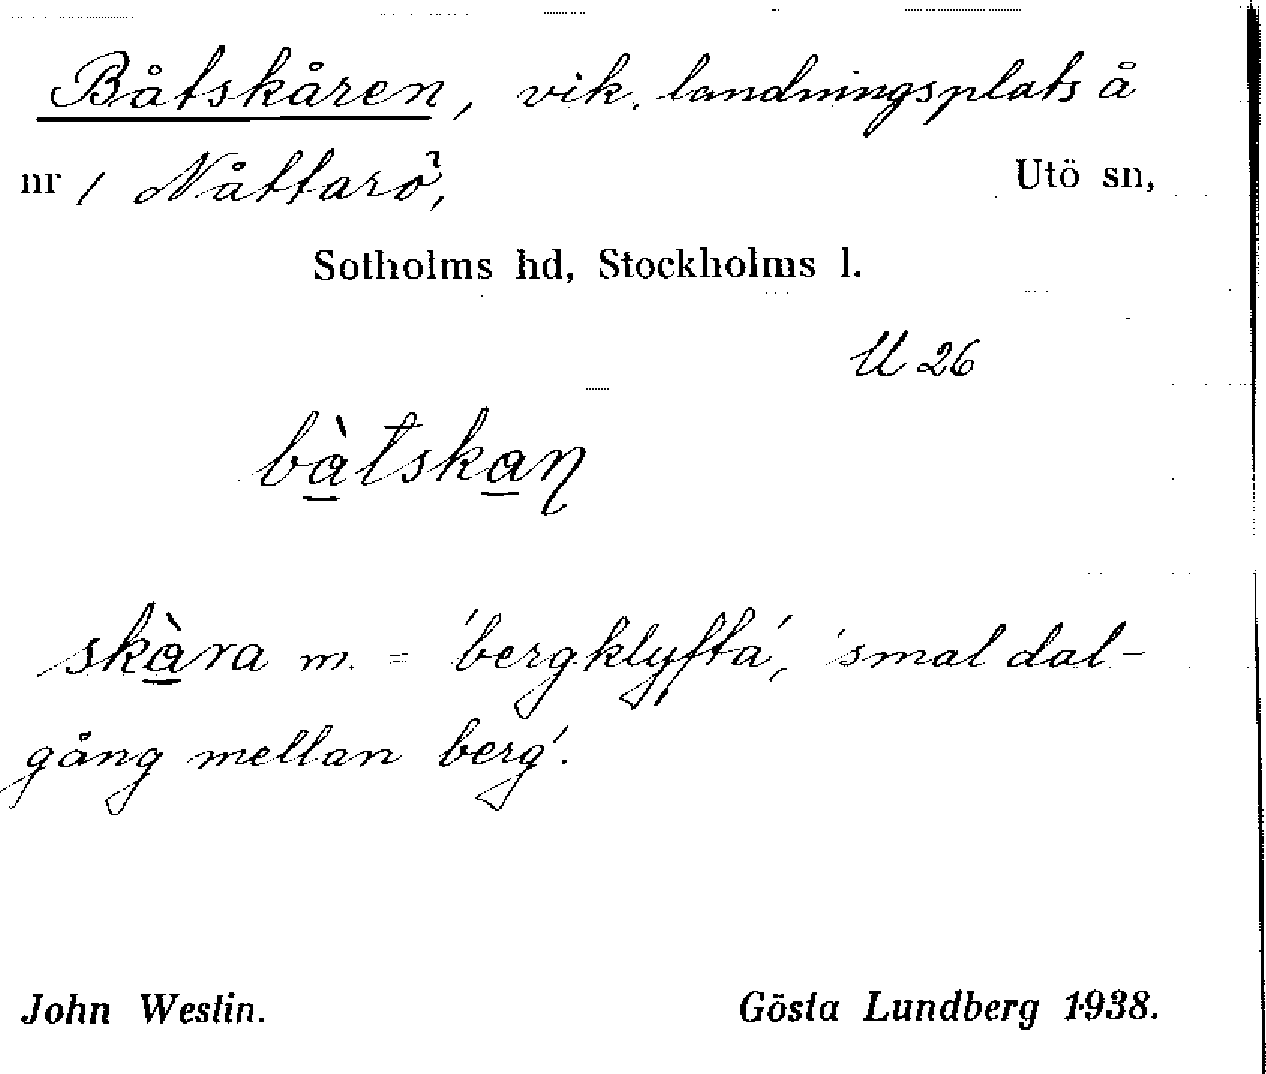 Båtskåren, vik, landningsplats å
nr 1 Nåttarö, Utö sn,
Sotholms hd, Stockholms l.
U 26
bà̱tska̱ɳ
skà̱ra m. = 'bergklyfta', 'smal dal-
gång mellan berg'.
John Westin. Gösta Lundberg 1938.